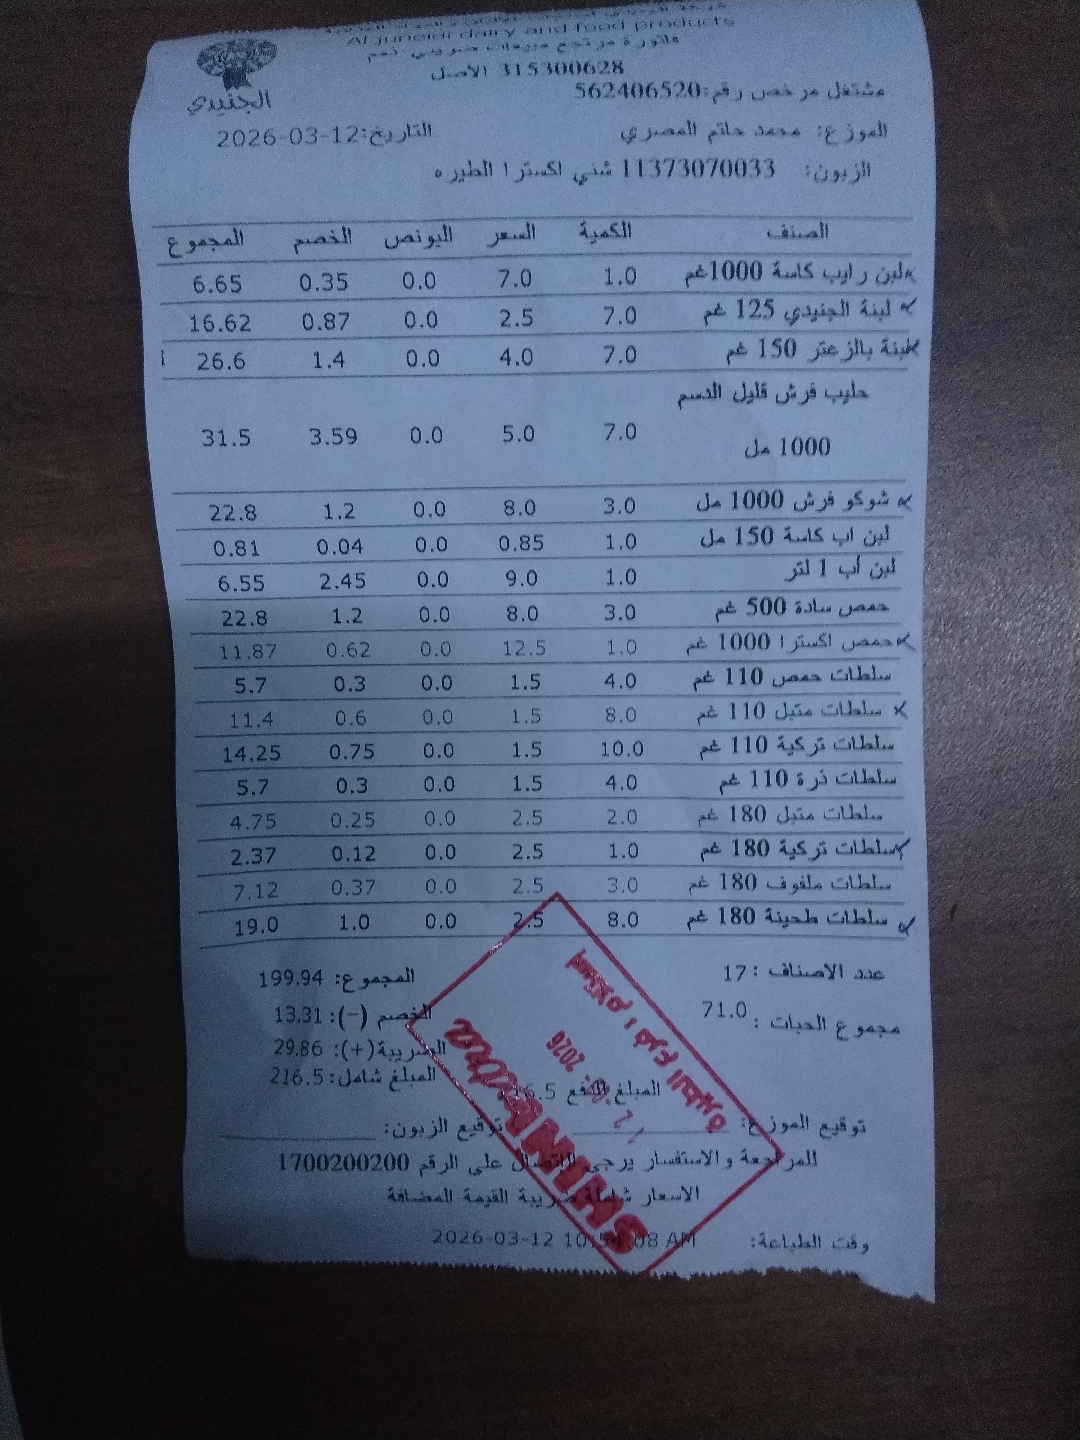 Al juneidi dairy and food products
فاتورة مرتجع مبيعات ضريبي ذمم
315300628 الأصل
الجنيدي
مشتغل مرخص رقم:562406520
الموزع: محمد حاتم المصري التاريخ:2026-03-12
الزبون: 11373070033 شني اكسترا الطيره
الصنف الكمية السعر البونص الخصم المجموع
لبن رايب كاسة 1000غم 1.0 7.0 0.0 0.35 6.65
لبنة الجنيدي 125 غم 7.0 2.5 0.0 0.87 16.62
لبنة بالزعتر 150 غم 7.0 4.0 0.0 1.4 26.6
حليب فرش قليل الدسم
1000 مل 7.0 5.0 0.0 3.59 31.5
شوكو فرش 1000 مل 3.0 8.0 0.0 1.2 22.8
لبن اب كاسة 150 مل 1.0 0.85 0.0 0.04 0.81
لبن أب 1 لتر 1.0 9.0 0.0 2.45 6.55
حمص سادة 500 غم 3.0 8.0 0.0 1.2 22.8
حمص اكسترا 1000 غم 1.0 12.5 0.0 0.62 11.87
سلطات حمص 110 غم 4.0 1.5 0.0 0.3 5.7
سلطات متبل 110 غم 8.0 1.5 0.0 0.6 11.4
سلطات تركية 110 غم 10.0 1.5 0.0 0.75 14.25
سلطات ذرة 110 غم 4.0 1.5 0.0 0.3 5.7
سلطات متبل 180 غم 2.0 2.5 0.0 0.25 4.75
سلطات تركية 180 غم 1.0 2.5 0.0 0.12 2.37
سلطات ملفوف 180 غم 3.0 2.5 0.0 0.37 7.12
سلطات طحينة 180 غم 8.0 2.5 0.0 1.0 19.0
عدد الاصناف : 17 المجموع: 199.94
مجموع الحبات : 71.0 الخصم (-): 13.31
الضريبة(+): 29.86
المبلغ شامل: 216.5
المبلغ 16.5
توقيع الموزع: توقيع الزبون:
للمراجعة والاستفسار يرجى الاتصال على الرقم 1700200200
الاسعار شاملة ضريبة القيمة المضافة
وقت الطباعة: 2026-03-12 10:54:08 AM
SHINI extra
فرع الطيرة
2026